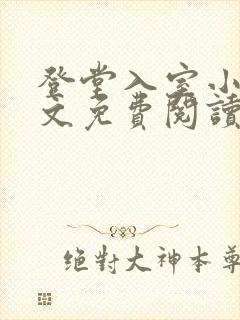 登堂入室小
文免費閱讀
絕對大神本尊